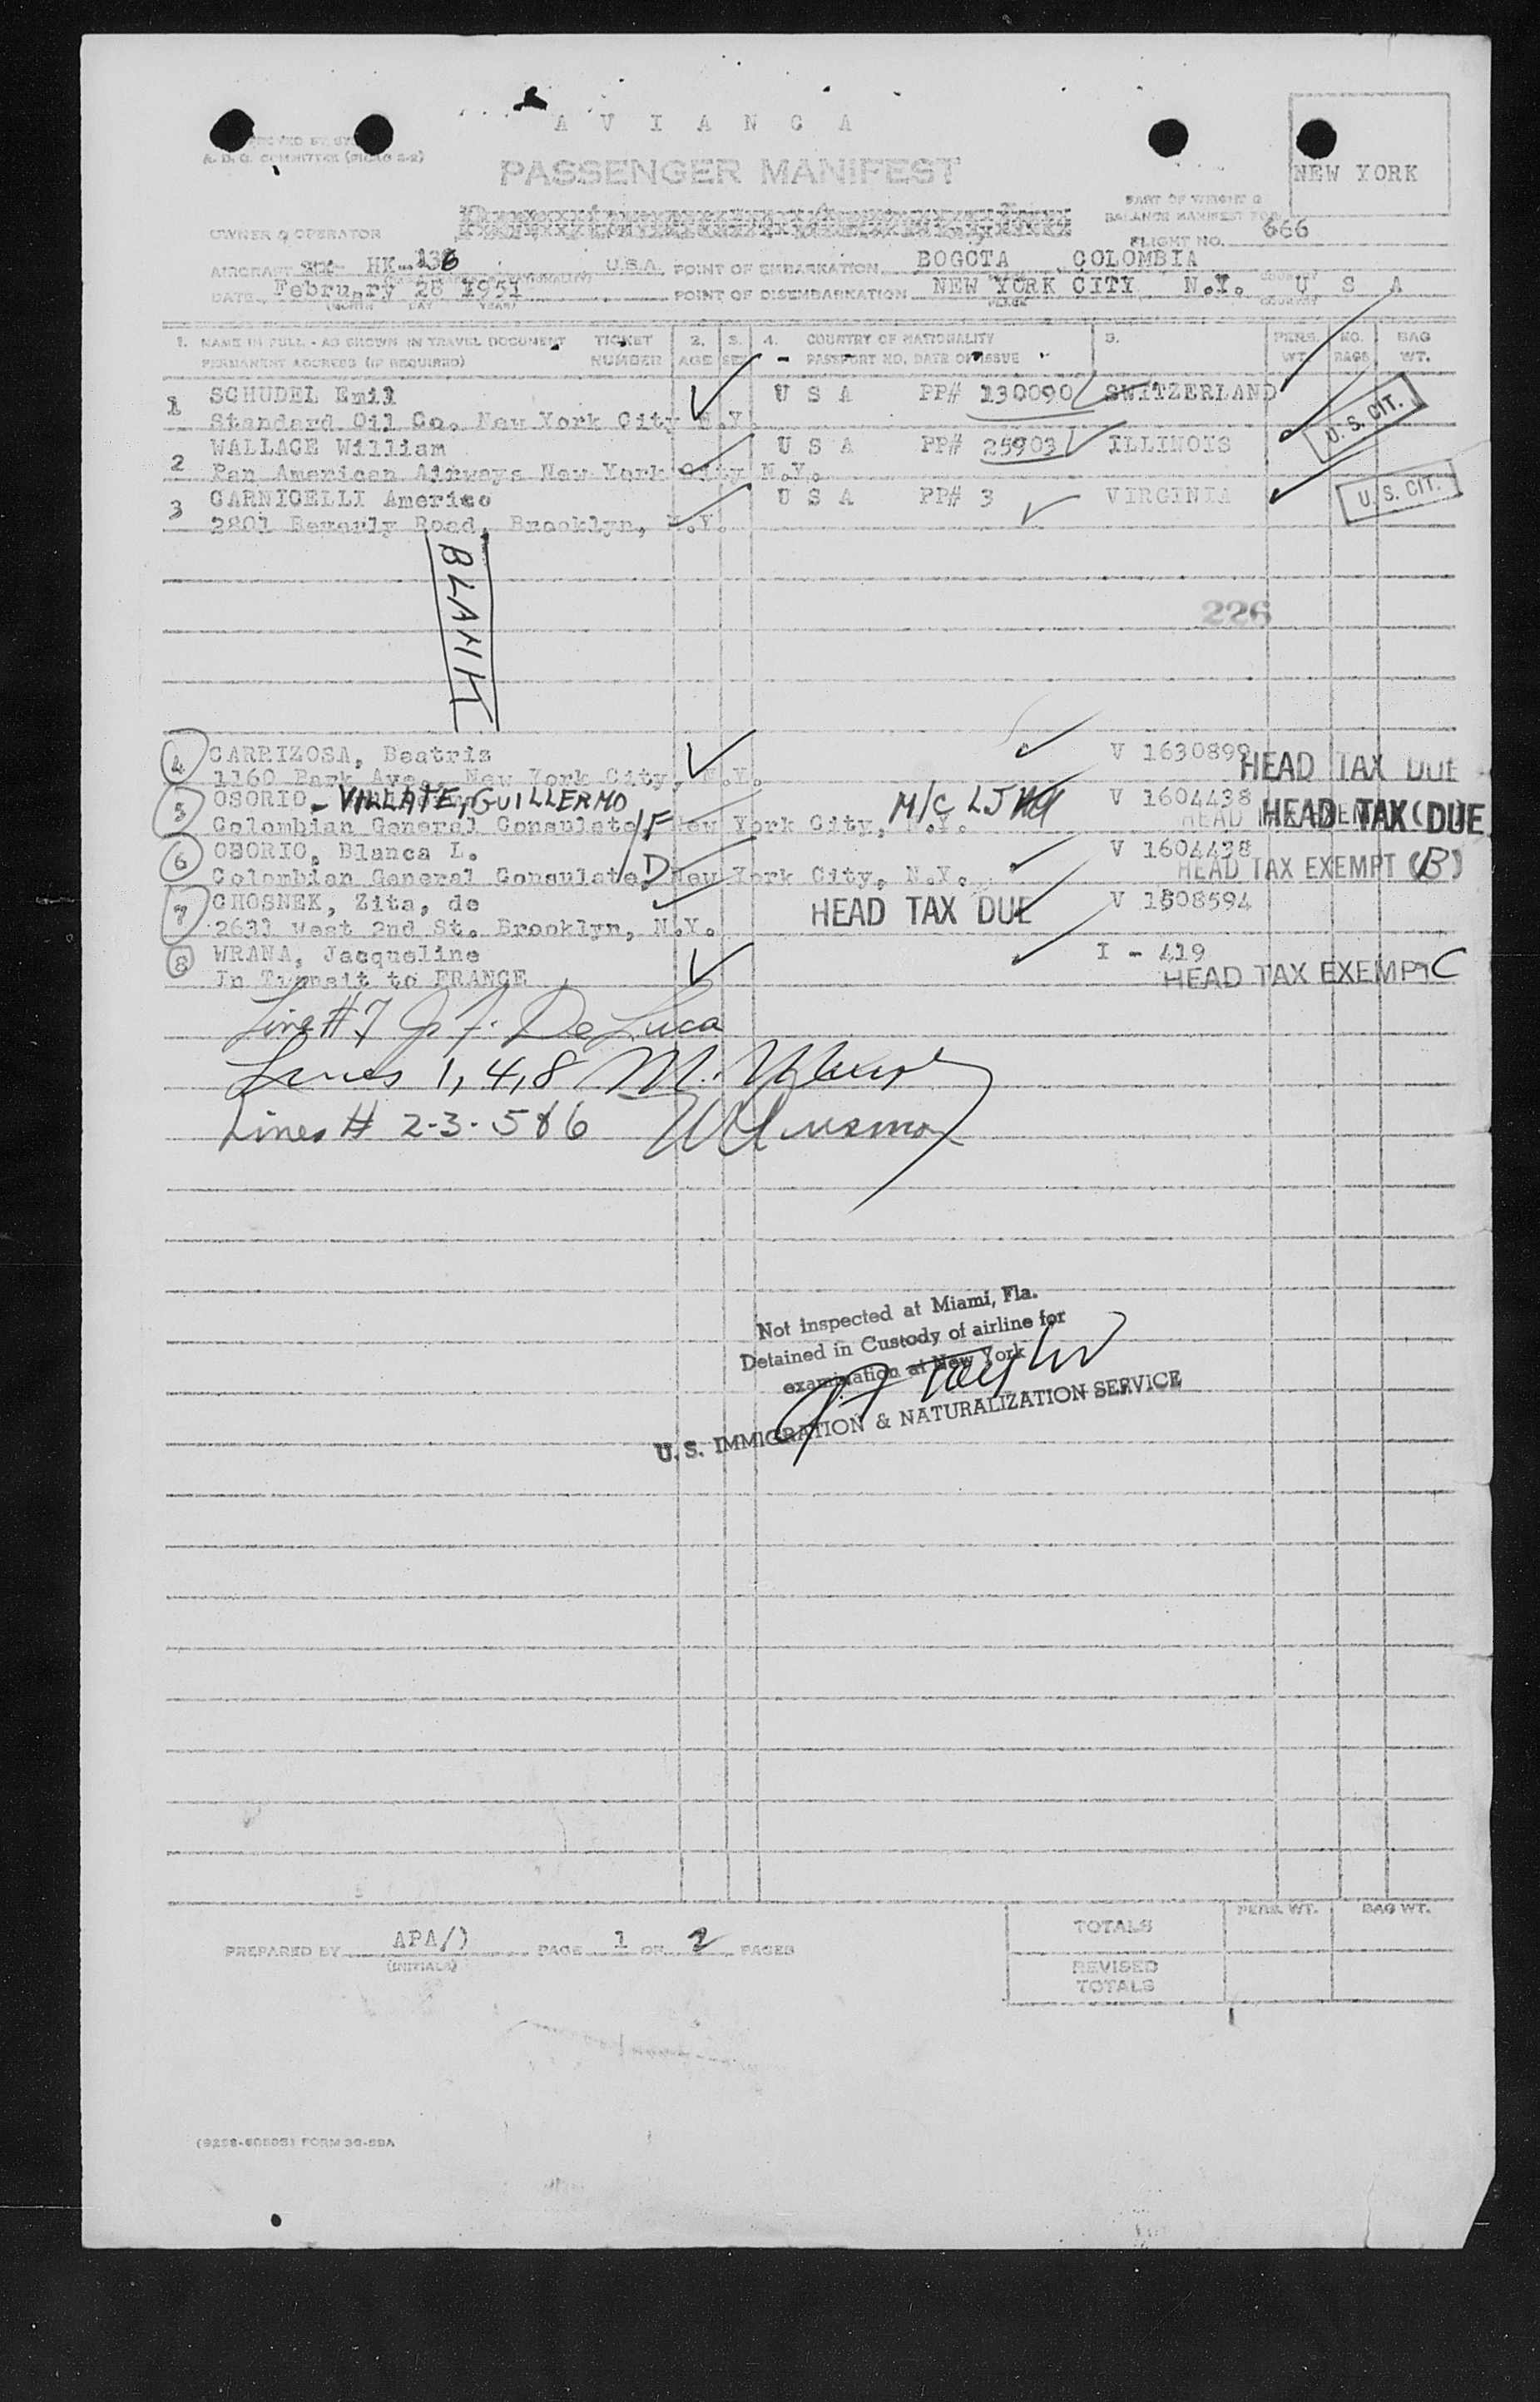 A V I A N C A
A. D. C. COMMITTEE
PASSENGER MANIFEST
NEW YORK
PART OF WEIGHT &
BALANCE MANIFEST FOR
OWNER & OPERATOR
FLIGHT NO. 666
AIRCRAFT HK-136 U.S.A. POINT OF EMBARKATION BOGOTA COLOMBIA
DATE February 26 1951 POINT OF DISEMBARKATION NEW YORK CITY N.Y. U S A
(MONTH DAY YEAR) PLACE COUNTRY
1. NAME IN FULL - AS SHOWN IN TRAVEL DOCUMENT TICKET 2. 3. 4. COUNTRY OF NATIONALITY 5. PERS. NO. BAG
PERMANENT ADDRESS (IF REQUIRED) NUMBER AGE SEX - PASSPORT NO. DATE OF ISSUE WT. BAGS WT.
1 SCHUDEL Emil U S A PP# 130090 SWITZERLAND
Standard Oil Co. New York City N.Y. U. S. CIT.
2 WALLACE William U S A PP# 25903 ILLINOIS
Pan American Airways New York City N.Y.
3 CARNICELLI Americo U S A PP# 3 VIRGINIA U. S. CIT.
2801 Beverly Road, Brooklyn, N.Y.
BLANK
226
4 CARRIZOSA, Beatriz V 1630899
1160 Park Ave., New York City, N.Y. HEAD TAX DUE
5 OSORIO - VILLATE, GUILLERMO M/C V 1604438
Colombian General Consulate, New York City, N.Y. HEAD TAX DUE
6 OSORIO, Blanca L. V 1604438
Colombian General Consulate, New York City, N.Y. HEAD TAX EXEMPT (B)
7 CHOSNEK, Zita, de HEAD TAX DUE V 1508594
2631 West 2nd St. Brooklyn, N.Y.
8 WRANA, Jacqueline I - 419
In Transit to FRANCE HEAD TAX EXEMPT C
Line #7 J. F. De Luca
Lines 1, 4, 8 M.
Lines # 2-3-5&6
Not inspected at Miami, Fla.
Detained in Custody of airline for
examination at New York
U. S. IMMIGRATION & NATURALIZATION SERVICE
PREPARED BY APA/) PAGE 1 OF 2 PAGES
(INITIALS)
PERS. WT. BAG WT.
TOTALS
REVISED
TOTALS